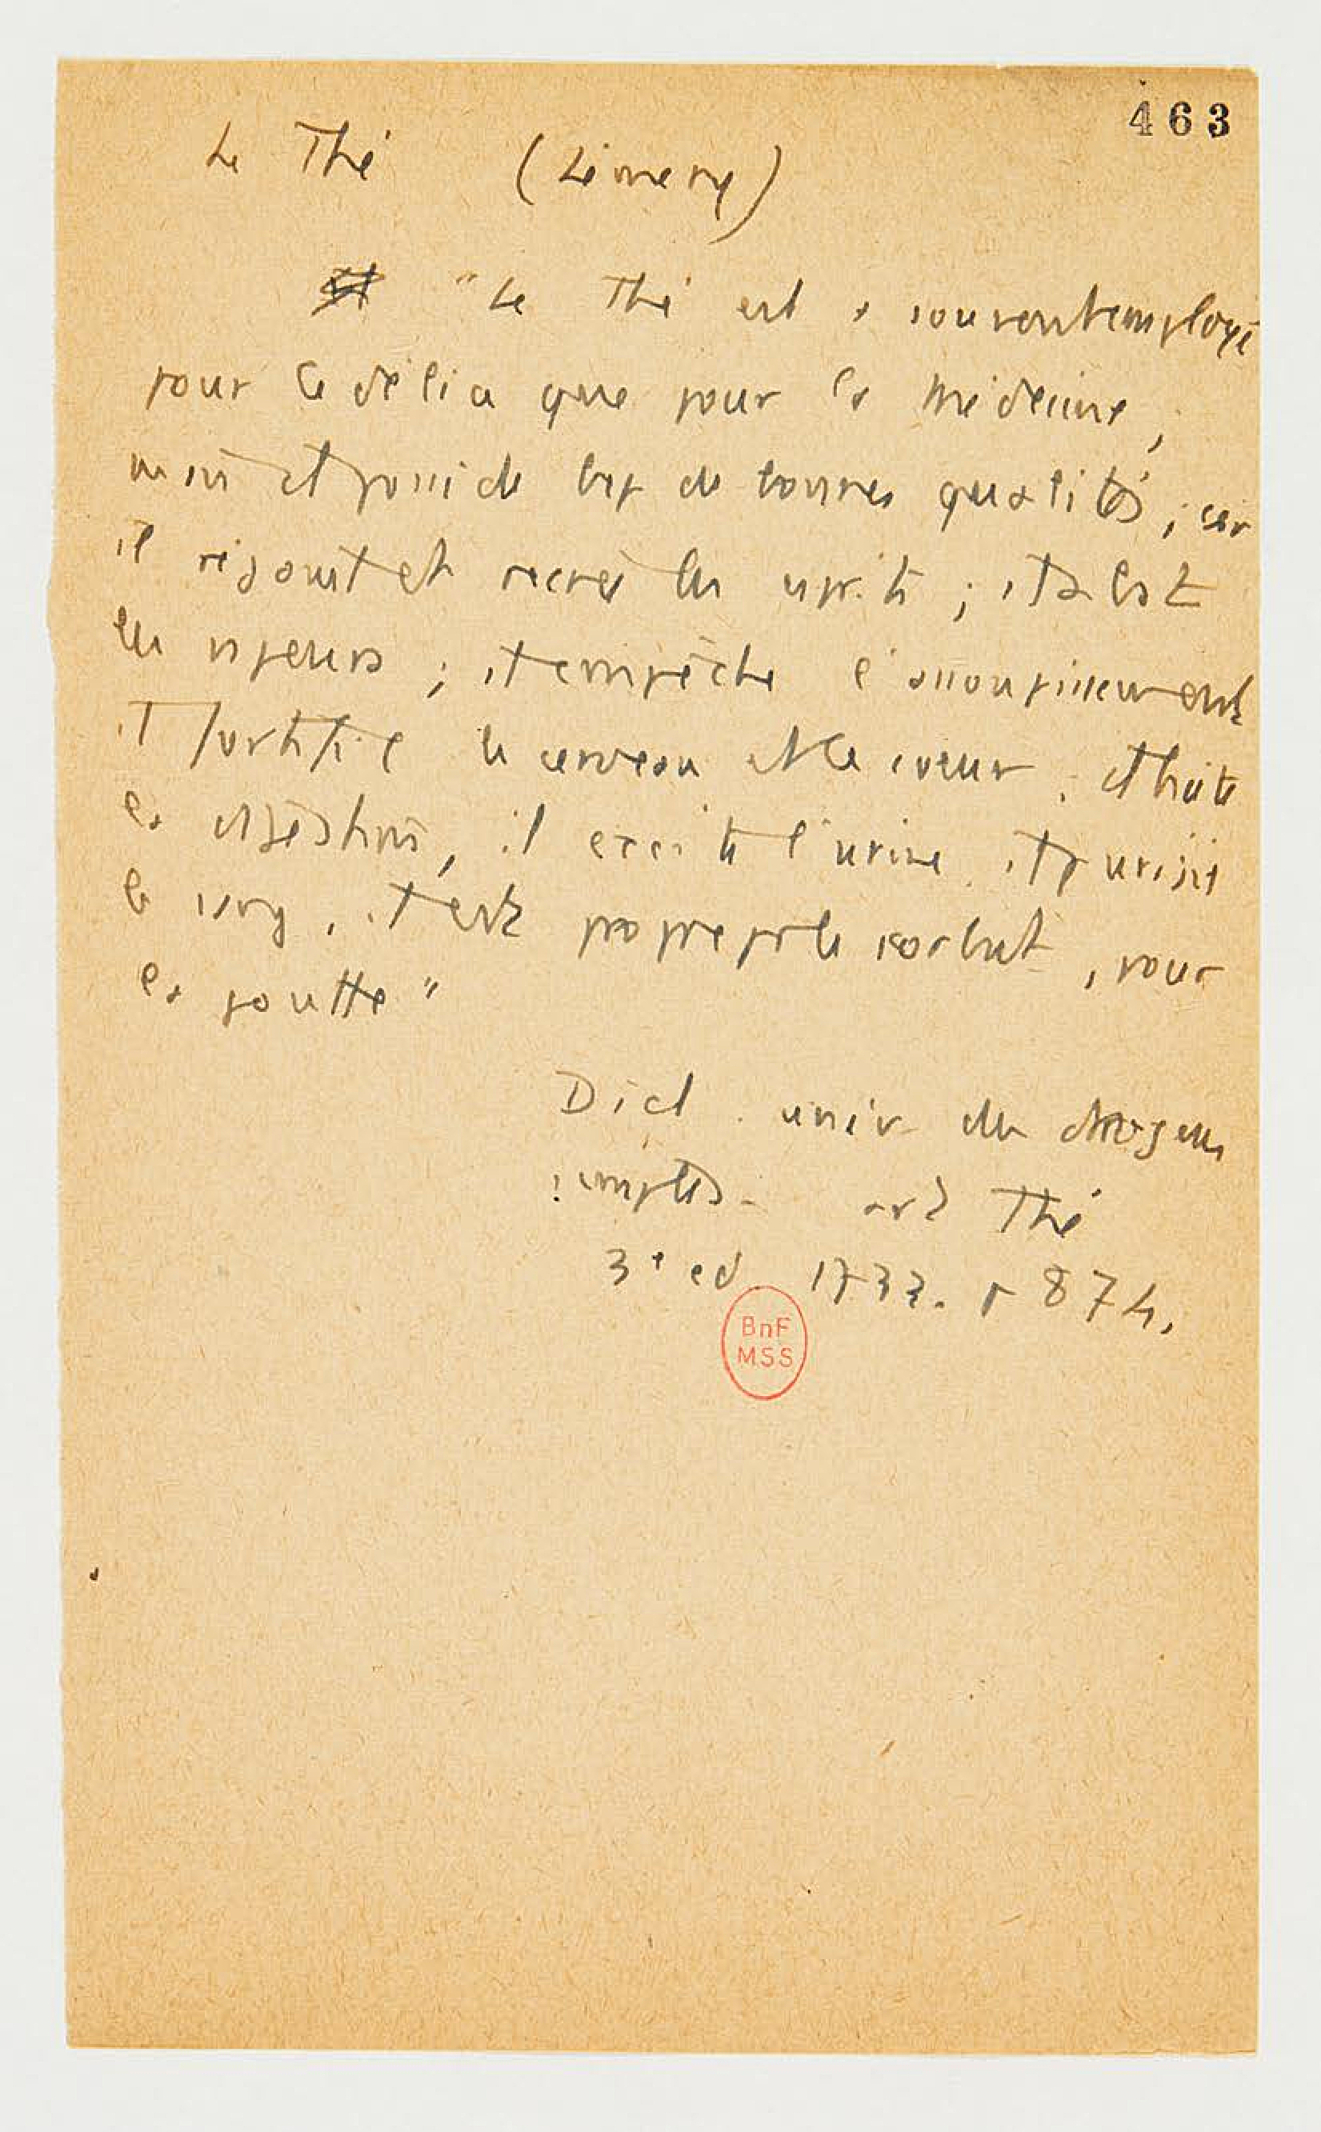 463
Le Thé (Lémery)
"Le Thé est + souvent employé
pour le délice que pour la médecine,
mais il possède bcp de bonnes qualités ; car
il réjouit et récrée les esprits ; il abat
les vapeurs ; il empêche l'assoupissement
il fortifie le cerveau et le coeur. il hâte
la digestion, il excite l'urine, il purifie
le sang, il est propre pr le scorbut, pour
la goutte"
Dict. univ des drogues
simples. art Thé
3e ed 1733. p 874.
BnF
MSS